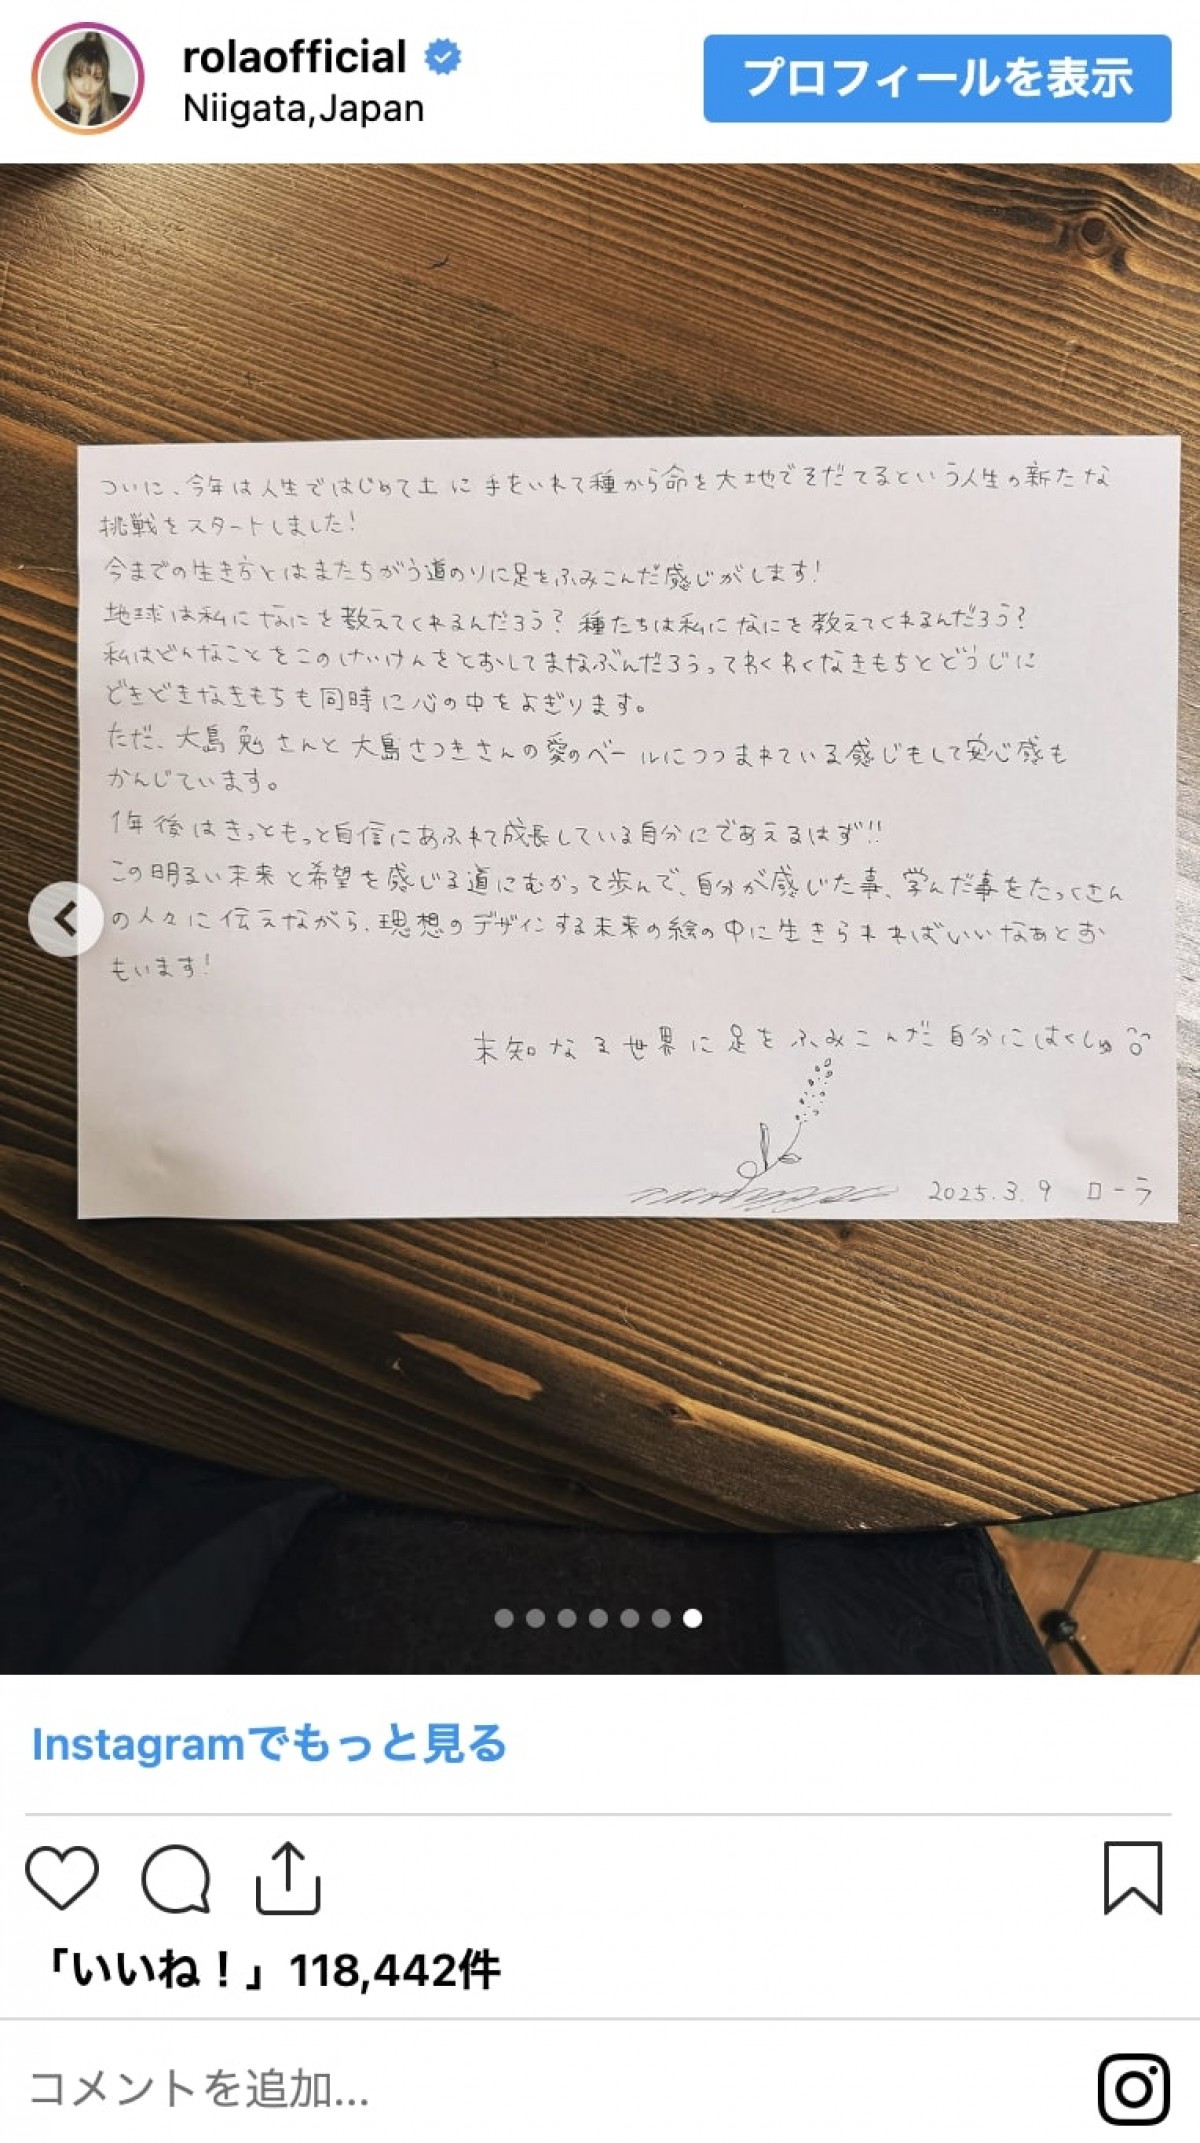 rolaofficial
Niigata,Japan
プロフィールを表示
ついに、今年は人生ではじめて土に手をいれて種から命を大地でそだてるという人生の新たな
挑戦をスタートしました!
今までの生き方とはまたちがう道のりに足をふみこんだ感じがします!
地球は私になにを教えてくれるんだろう?種たちは私になにを教えてくれるんだろう?
私はどんなことをこのけいけんをとおしてまなぶんだろうってわくわくなきもちとどうじに
どきどきなきもちも同時に心の中をよぎります。
ただ、大島勉さんと大島さつきさんの愛のベールにつつまれている感じもして安心感も
かんじています。
1年後はきっともっと自信にあふれて成長している自分にであえるはず!!
この明るい未来と希望を感じる道にむかって歩んで、自分が感じた事、学んだ事をたっくさん
の人々に伝えながら、理想のデザインする未来の絵の中に生きられればいいなぁとお
もいます!
未知なる世界に足をふみこんだ自分にはくしゅ
2025.3.9 ローラ
Instagramでもっと見る
「いいね!」118,442件
コメントを追加...